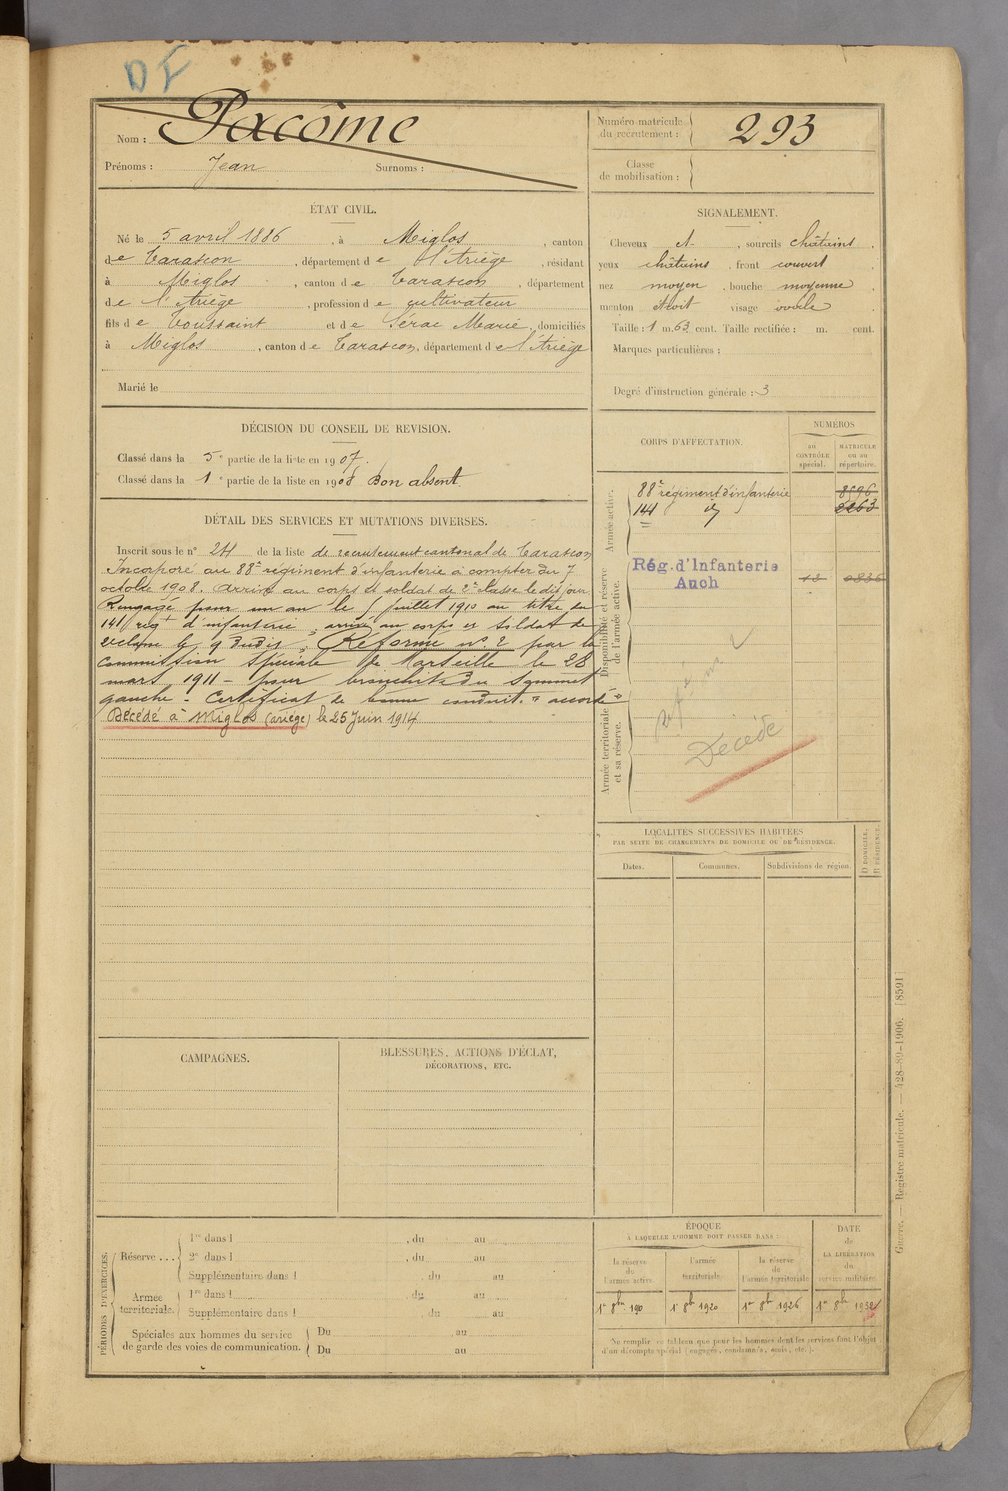 DF
Nom : Pacôme
Prénoms : Jean Surnoms :
Numéro matricule du recrutement : 293
Classe de mobilisation :
ÉTAT CIVIL.
Né le 5 avril 1886, à Miglos, canton
de Tarascon, département de l'Ariège, résidant
à Miglos, canton de Tarascon, département
de l'Ariège, profession de cultivateur
fils de Toussaint et de Sérac Marie, domiciliés
à Miglos, canton de Tarascon, département de l'Ariège
Marié le
SIGNALEMENT.
Cheveux et, sourcils châtains,
yeux châtains, front couvert,
nez moyen, bouche moyenne,
menton étroit visage ovale.
Taille : 1 m. 63 cent. Taille rectifiée : m. cent.
Marques particulières :
Degré d'instruction générale : 3
DÉCISION DU CONSEIL DE REVISION.
Classé dans la 5e partie de la liste en 1907.
Classé dans la 1e partie de la liste en 1908 Bon absent
CORPS D'AFFECTATION.
NUMÉROS
au CONTRÔLE spécial.
MATRICULE ou au répertoire.
Armée active.
88e régiment d'infanterie 8596
141 dº 2263
Disponibilité et réserve de l'armée active.
Rég. d'Infanterie
Auch
Réf. n° 2
Armée territoriale et sa réserve.
Décédé
DÉTAIL DES SERVICES ET MUTATIONS DIVERSES.
Inscrit sous le n° 24 de la liste de recrutement cantonal de Tarascon
Incorporé au 88e régiment d'infanterie à compter du 7
octobre 1908. Arrivé au corps et soldat de 2e classe le dit jour
Rengagé pour un an le juillet 1910 au titre du
141 régt d'infanterie, arrivé au corps et soldat de
2e classe le 9 dudit. Réformé n° 2 par la
commission spéciale de Marseille le 28
mars 1911 – pour bronchite du sommet
gauche. Certificat de bonne conduite "accordé"
Décédé à Miglos (ariège) le 25 Juin 1914
LOCALITÉS SUCCESSIVES HABITÉES
PAR SUITE DE CHANGEMENTS DE DOMICILE OU DE RÉSIDENCE.
Dates. Communes. Subdivisions de région. D DOMICILE, R RÉSIDENCE.
CAMPAGNES.
BLESSURES, ACTIONS D'ÉCLAT,
DÉCORATIONS, ETC.
PÉRIODES D'EXERCICES.
Réserve....
1re dans l , du au
2e dans l , du au
Supplémentaire dans l , du au
Armée territoriale.
1re dans l , du au
Supplémentaire dans l , du au
Spéciales aux hommes du service de garde des voies de communication.
Du au
Du au
ÉPOQUE
À LAQUELLE L'HOMME DOIT PASSER DANS :
la réserve de l'armée active
l'armée territoriale
la réserve de l'armée territoriale
DATE de LA LIBÉRATION du service militaire
1er 8bre 190
1er 8bre 1920
1er 8bre 1926
1er 8bre 1932
Ne remplir ce tableau que pour les hommes dont les services font l'objet
d'un décompte spécial (engagés, condamnés, omis, etc.).
Guerre. — Registre matricule. — 428-89-1906. [8591]